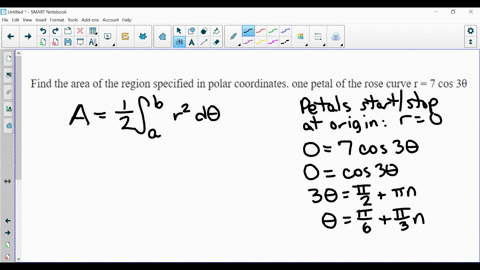 Untitled* - SMART Notebook
File Edit View Insert Format Tools Add-ons Account Help
Find the area of the region specified in polar coordinates. one petal of the rose curve r = 7 cos 3θ
A = 1/2 ∫_a^b r² dθ
Petals start/stop
at origin: r = 0
0 = 7 cos 3θ
0 = cos 3θ
3θ = π/2 + πn
θ = π/6 + π/3 n